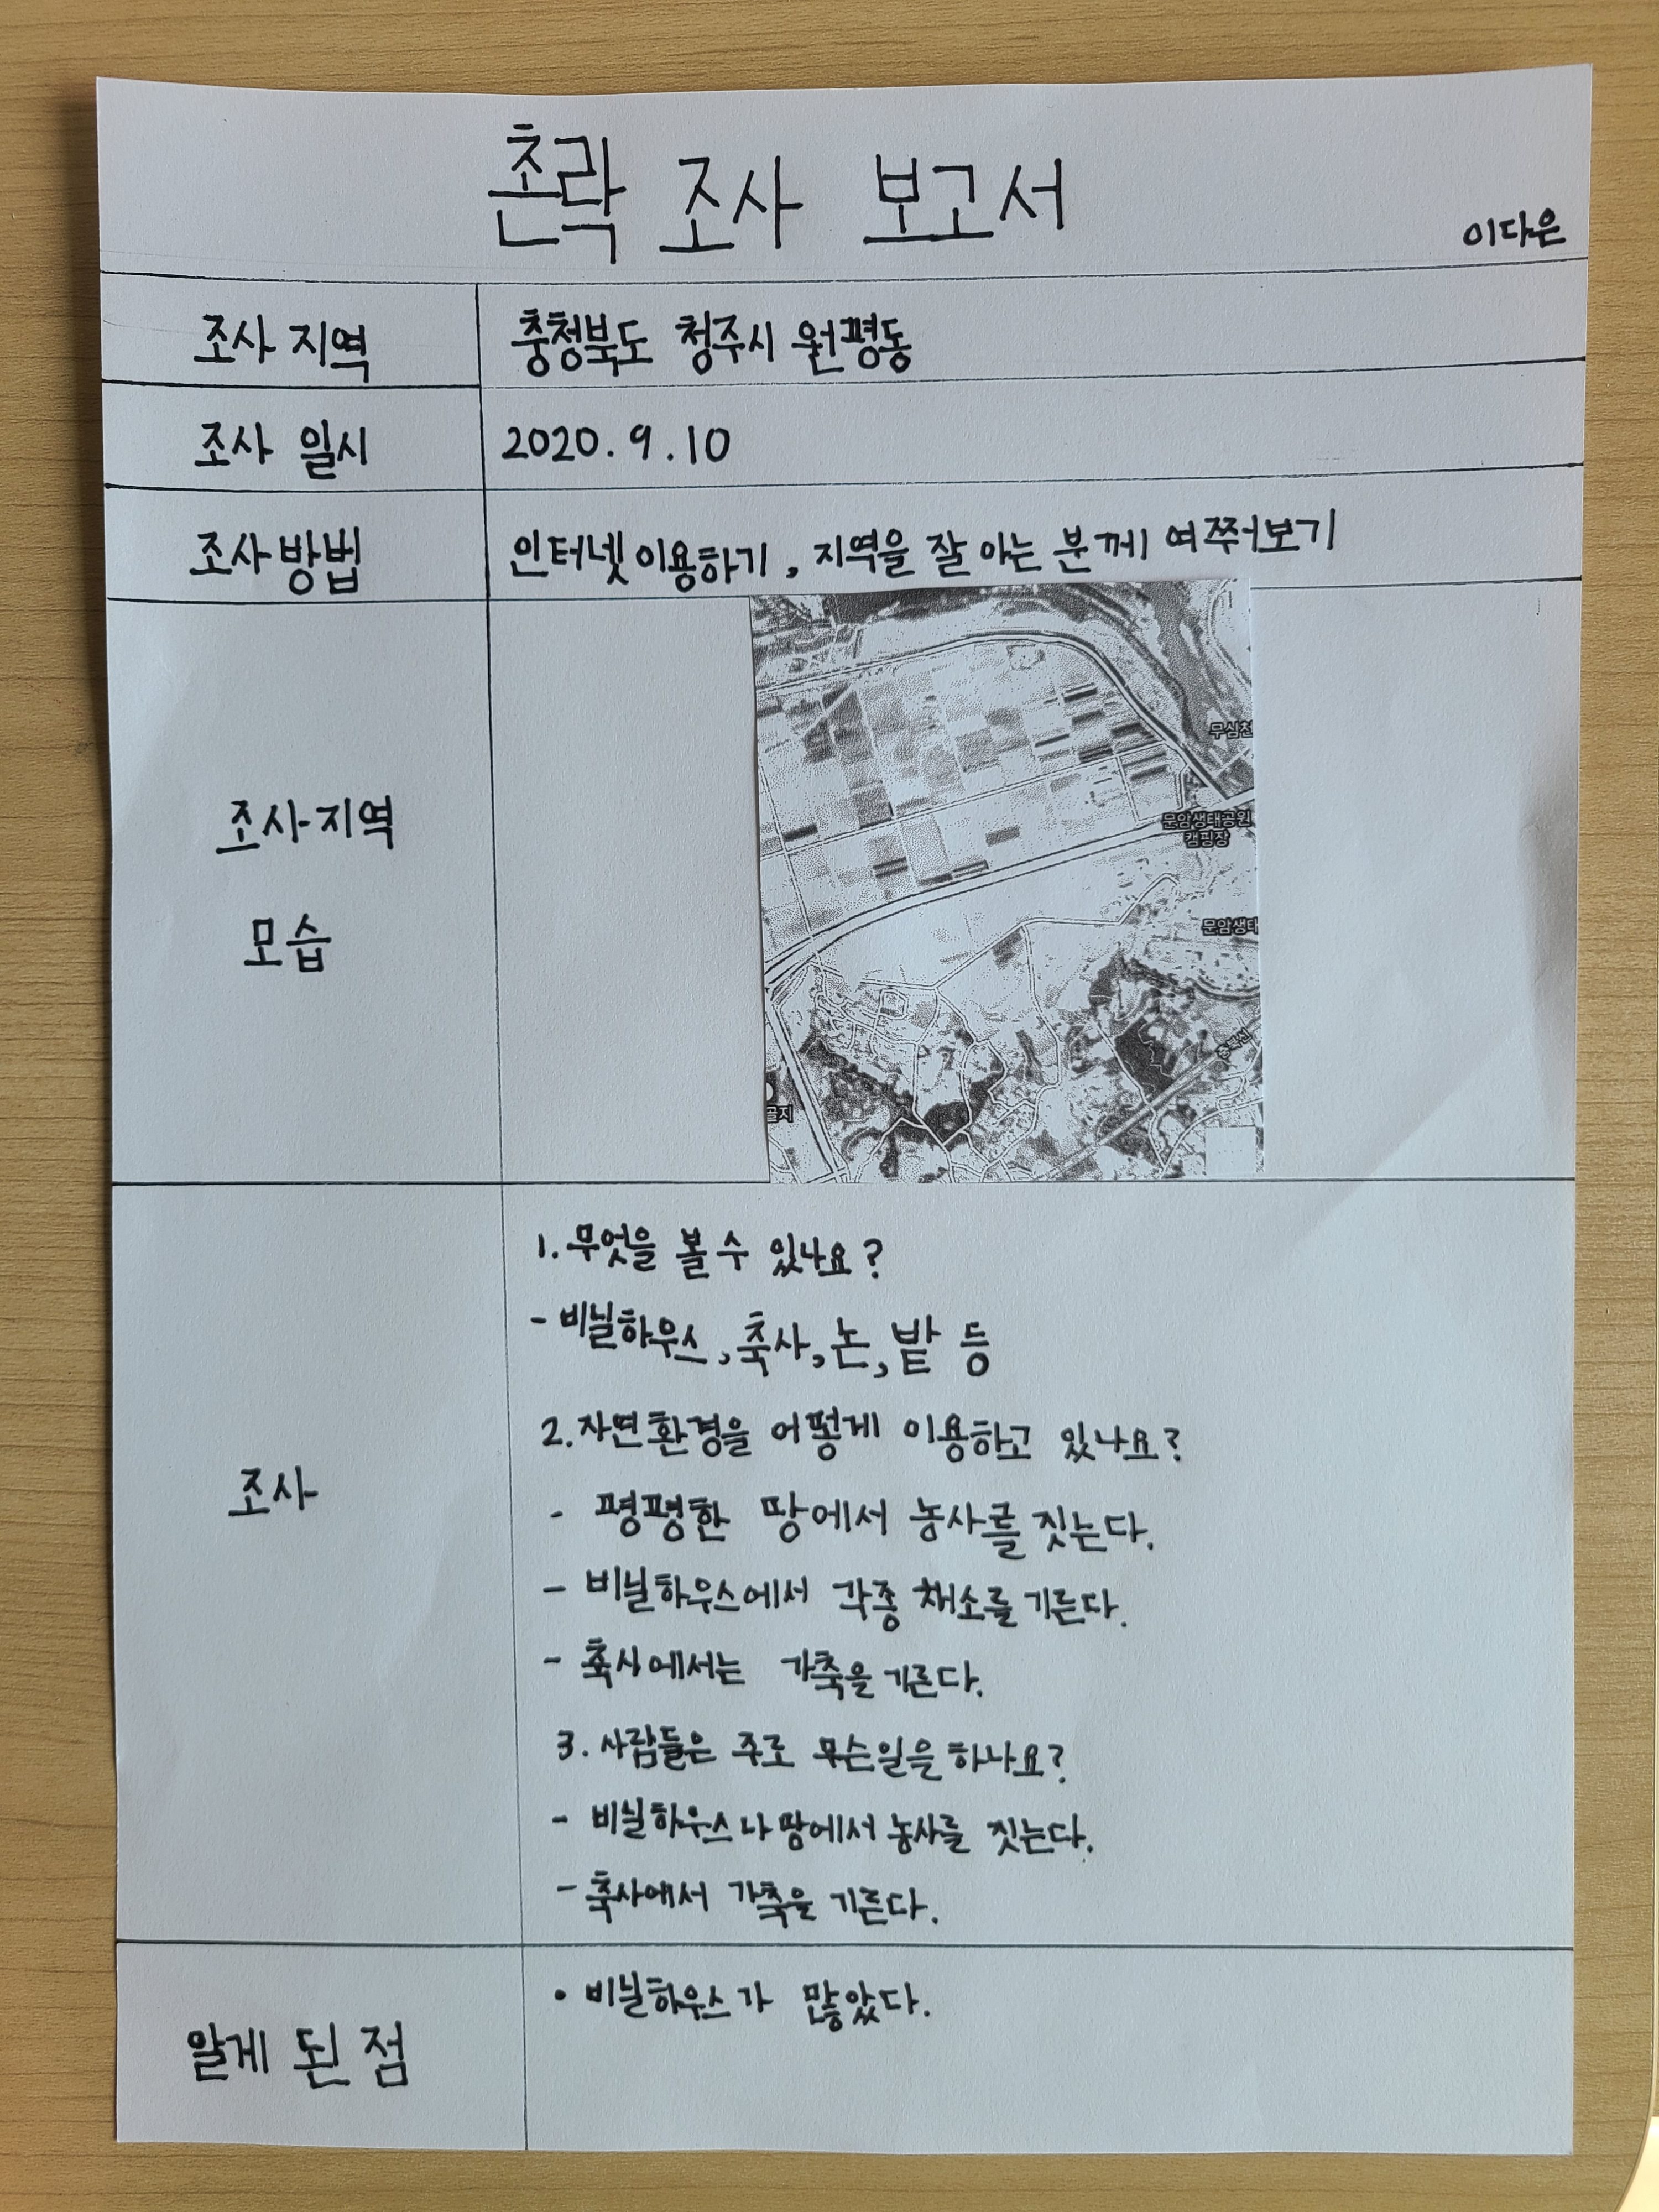 촌락 조사 보고서
이다은
조사 지역
충청북도 청주시 원평동
조사 일시
2020. 9. 10
조사 방법
인터넷 이용하기, 지역을 잘 아는 분께 여쭈어보기
조사 지역
모습
무심천
문암생태공원
캠핑장
문암생태
충북선
골지
조사
1. 무엇을 볼 수 있나요?
- 비닐하우스, 축사, 논, 밭 등
2. 자연환경을 어떻게 이용하고 있나요?
- 평평한 땅에서 농사를 짓는다.
- 비닐하우스에서 각종 채소를 기른다.
- 축사에서는 가축을 기른다.
3. 사람들은 주로 무슨일을 하나요?
- 비닐하우스나 땅에서 농사를 짓는다.
- 축사에서 가축을 기른다.
알게 된 점
• 비닐하우스가 많았다.